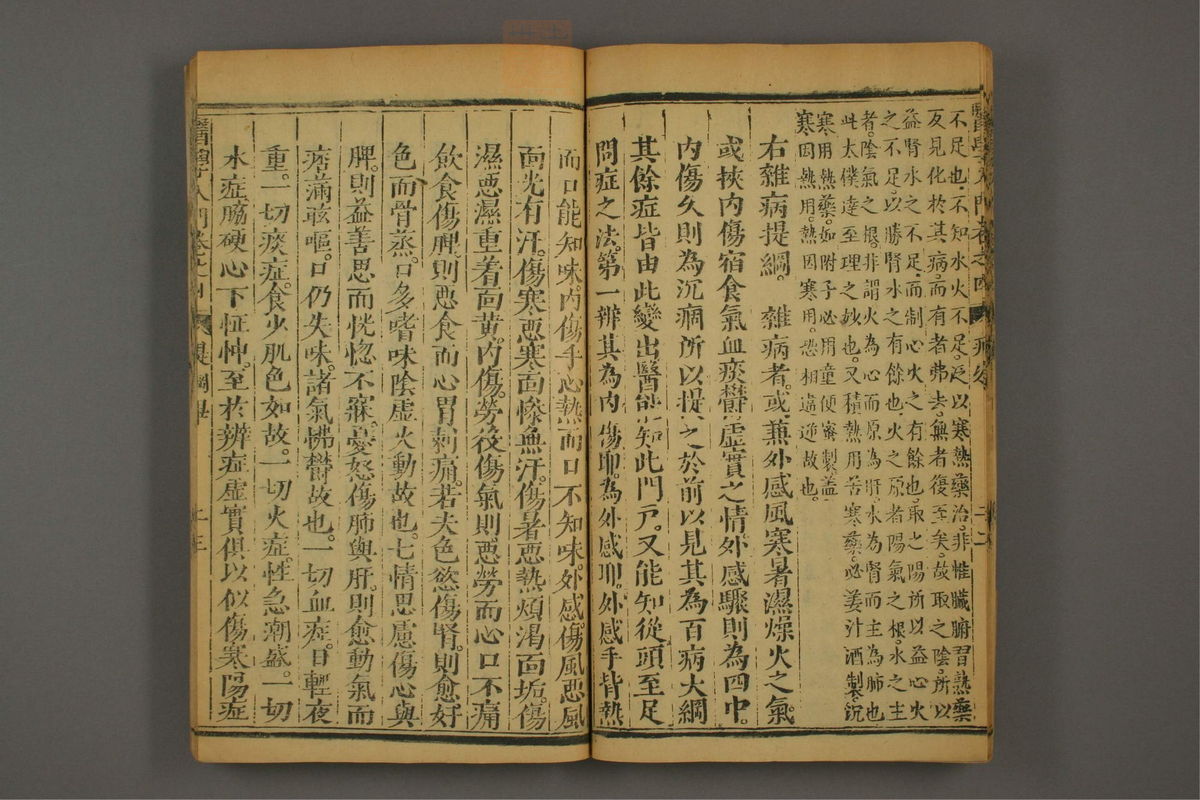 醫學入門卷之四
不足也不知水火不足泛以寒熱藥治非惟臟腑習熱藥
反見化於其病而有者弗去無者復至矣故取之陰所以
益腎水之不足而制心火之有餘也取之陽所以益心火
之不足以勝腎水之有餘也火之原者陽氣之根水之主
者陰氣之根非謂火為心而原為肝水為腎而主為肺也
此太僕達至理之妙也又積熱用苦寒藥必姜汁酒製沉
寒用熱藥如附子必用童便蜜製蓋
寒因熱用熱因寒用恐相違逆故也
右雜病提綱 雜病者或兼外感風寒暑濕燥火之氣
或挾內傷宿食氣血痰鬱虛實之情外感驟則為四中
內傷久則為沉痼所以提之於前以見其為百病大綱
其餘症皆由此變出醫能知此門戶又能知從頭至足
問症之法第一辨其為內傷耶為外感耶外感手背熱
而口能知味內傷手心熱而口不知味外感傷風惡風
面光有汗傷寒惡寒面慘無汗傷暑惡熱煩渴面垢傷
濕惡濕重着面黃內傷勞役傷氣則惡勞而心口不痛
飲食傷脾則惡食而心胃刺痛若夫色慾傷腎則愈好
色而骨蒸口多嗜味陰虛火動故也七情思慮傷心與
脾則益善思而恍惚不寐憂怒傷肺與肝則愈動氣而
痞滿咳嘔口仍失味諸氣怫鬱故也一切血症日輕夜
重一切痰症食少肌色如故一切火症性急潮盛一切
水症脇硬心下怔忡至於辨症虛實俱以似傷寒陽症
醫學入門卷之四